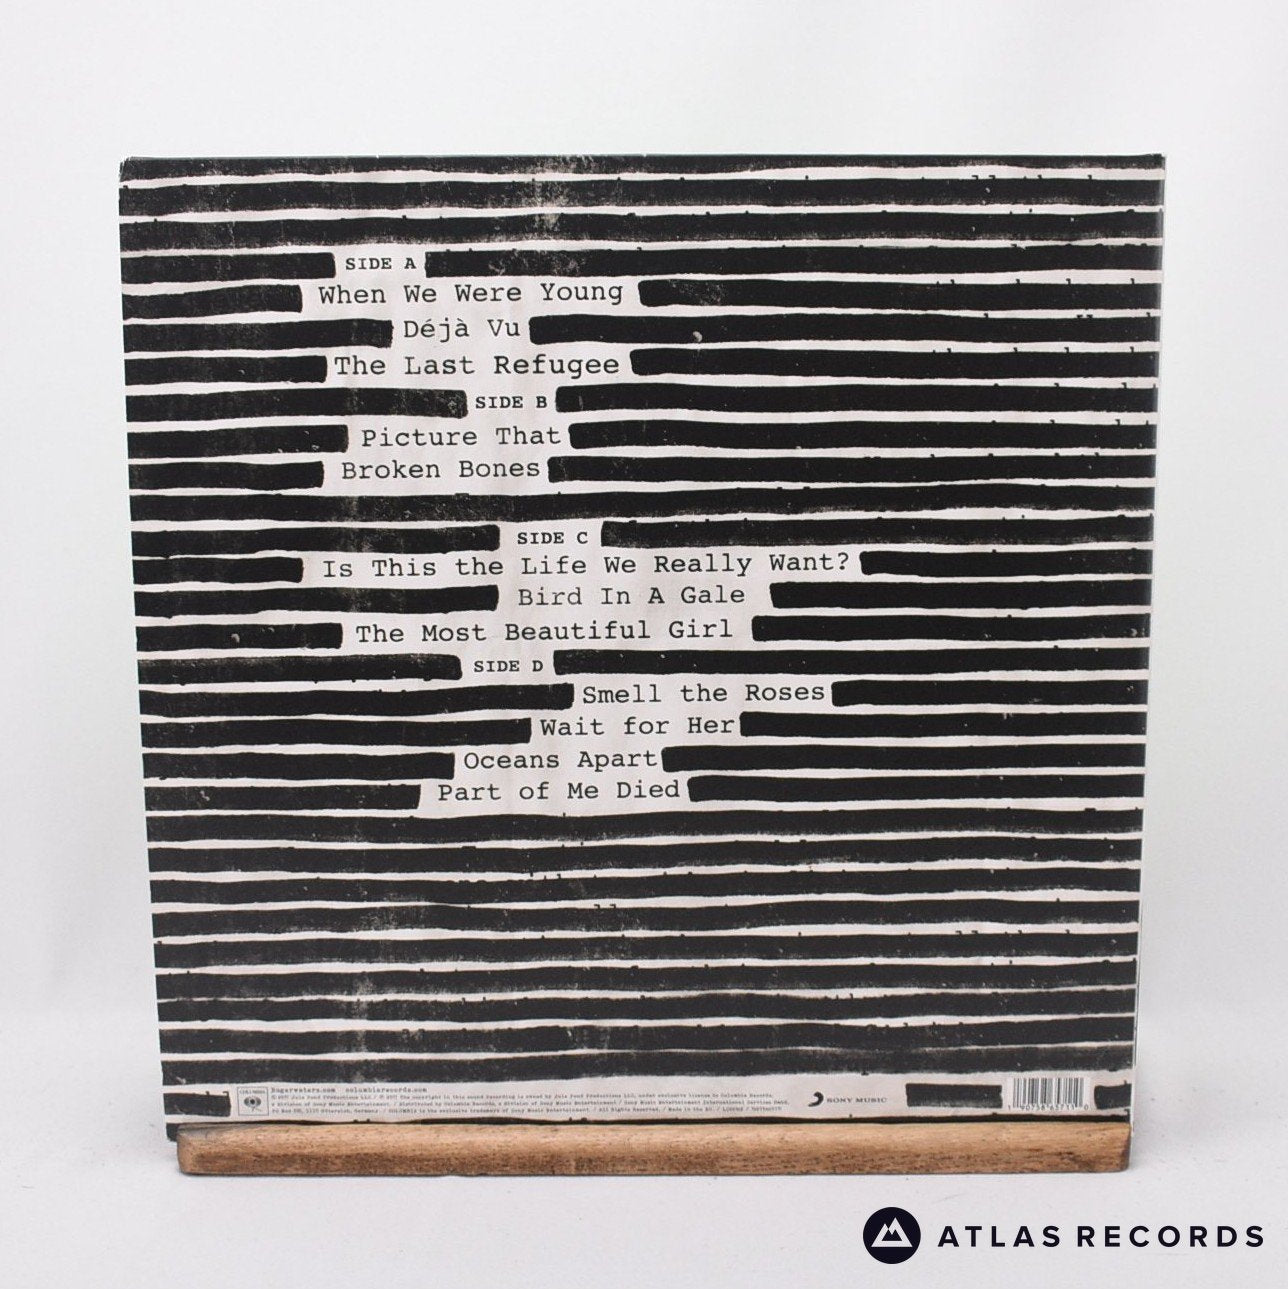 SIDE A
When We Were Young
Déjà Vu
The Last Refugee
SIDE B
Picture That
Broken Bones
SIDE C
Is This the Life We Really Want?
Bird In A Gale
The Most Beautiful Girl
SIDE D
Smell the Roses
Wait for Her
Oceans Apart
Part of Me Died
COLUMBIA
Rogerwaters.com columbiarecords.com
SONY MUSIC
ATLAS RECORDS